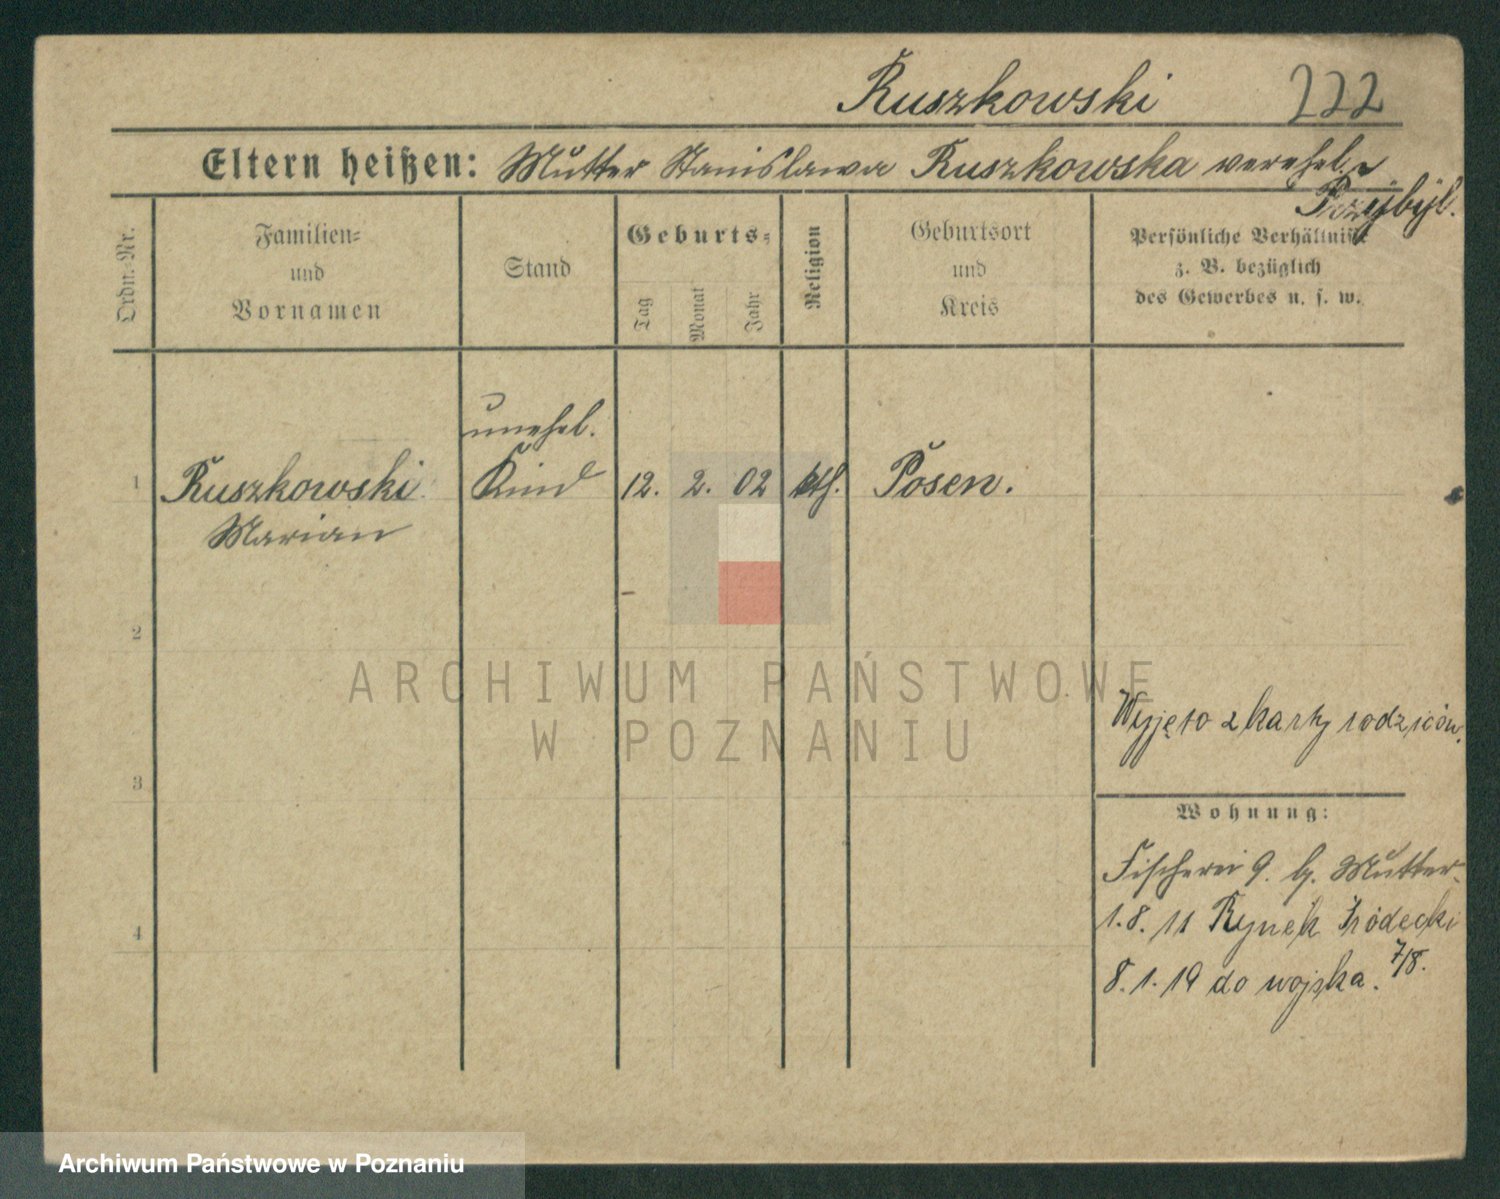 Ruszkowski 222
Eltern heißen: Mutter Stanislawa Ruszkowska verehel.
Przybyl.
Ordn. Nr.
Familien-
und
Vornamen
Stand
Geburts-
Tag
Monat
Jahr
Religion
Geburtsort
und
Kreis
Persönliche Verhältnisse
z. B. bezüglich
des Gewerbes u. s. w.
unehel.
1 Ruszkowski Kind 12. 2. 02 kth. Posen.
Marian
2
ARCHIWUM PAŃSTWOWE
W POZNANIU
Wyjęto z karty rodziców.
3
Wohnung:
Fischerei 9. b. Mutter
1.8.11 Rynek Śródecki
7/8.
4
8.1.19 do wojska.
Archiwum Państwowe w Poznaniu